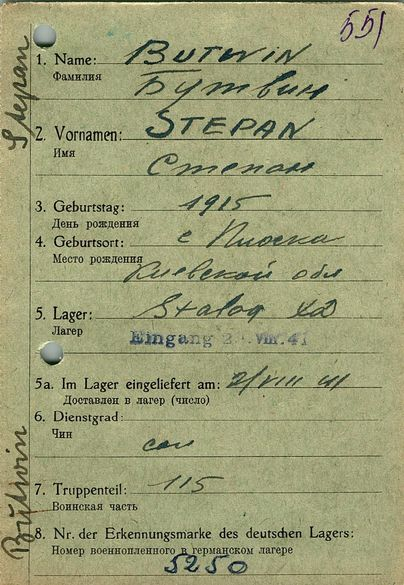 551
1. Name: BUTWIN
Фамилия
Бутвин
2. Vornamen: STEPAN
Имя
Степан
3. Geburtstag: 1915
День рождения
4. Geburtsort: с Плоска
Место рождения
Киевской обл
5. Lager: Stalag XD
Лагер
Eingang 2. VIII. 41
5a. Im Lager eingeliefert am: 2/VIII 41
Доставлен в лагер (число)
6. Dienstgrad:
Чин
сол
7. Truppenteil: 115
Воинская часть
8. Nr. der Erkennungsmarke des deutschen Lagers:
Номер военнопленного в германском лагере
5250
Stepan
Butwin